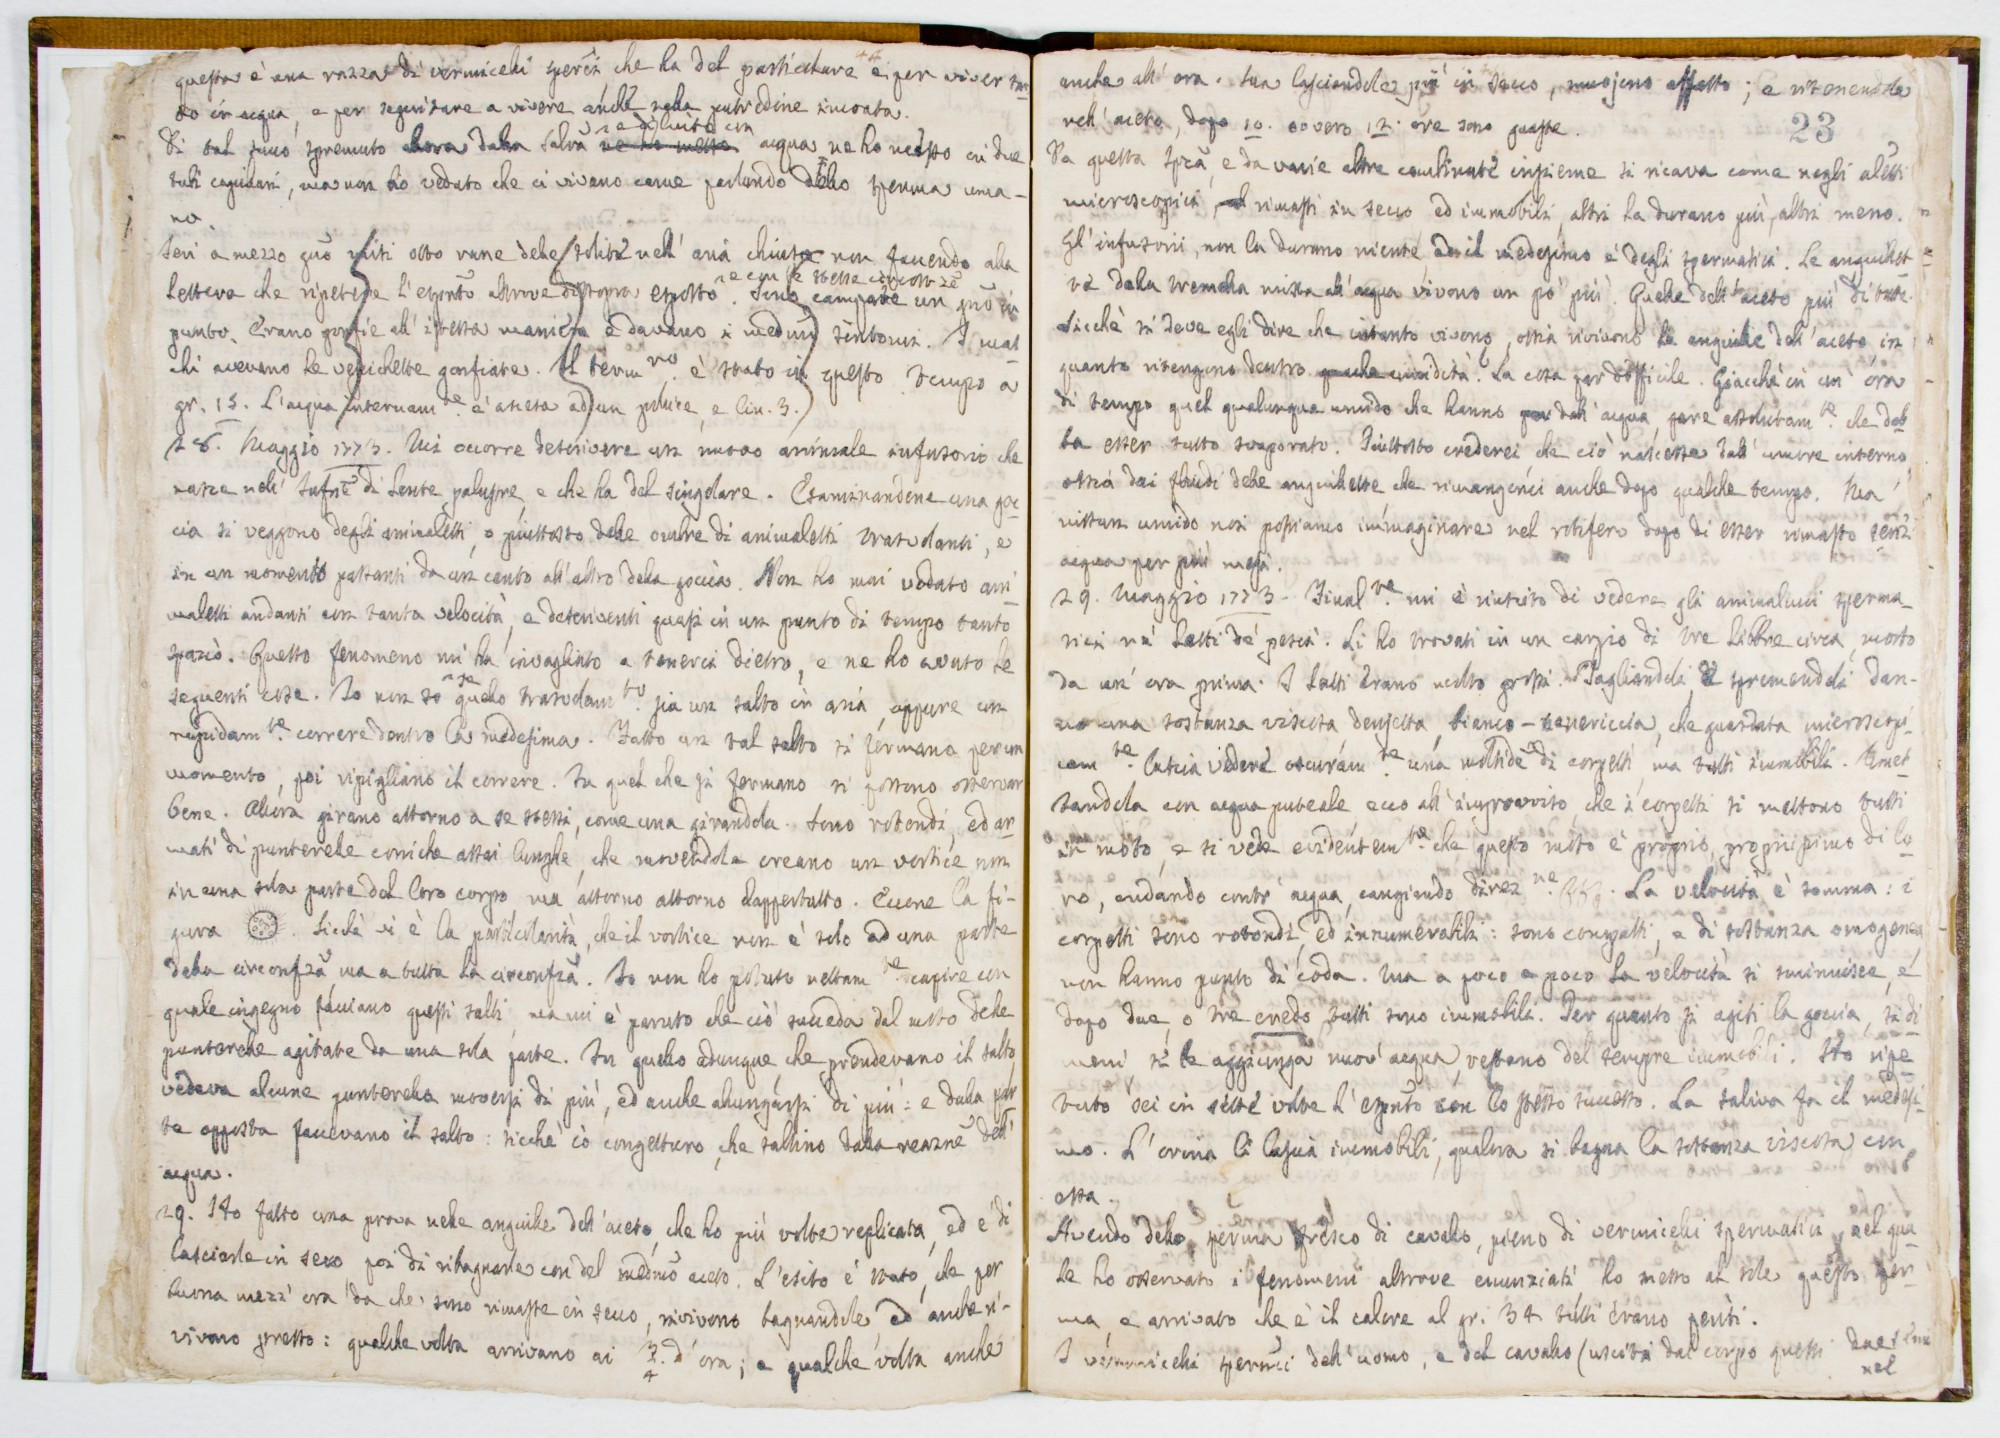 questa è una razza di vermicelli sperci che ha del particolare e per viver
to in acqua, e per seguitare a vivere anche nella putredine inoltrata.
Di tal suco spremuto allora dalla Salva ne ho messo e diluito con acqua ne ho messo in due
tubi capillari, ma non ho veduto che ci vivano come parlando dello sperma uma-
no.
Ieri a mezzo gno misi otto rane delle solite nell'aria chiusa non facendo alla
lettera che ripetere l'espto altrove di sopra esposto. Sono campate un gno in
punto. Erano gonfie all'istessa maniera e davano i medmi sintomi. I mas
chi avevano le vescichette gonfiate. Il term.ro è stato in questo tempo a
gr. 15. L'acqua internam.te è ascesa ad un pollice, e lin. 3.
28. Maggio 1773. Mi occorre descrivere un nuovo animale infusorio che
nasce nell'Infne di Lente palustre, e che ha del singolare. Esaminandone una goc
cia si veggono degli animaletti, o piuttosto delle ombre di animaletti tratodanti, e
in un momento passanti da un canto all'altro della goccia. Non ho mai veduto ani
maletti andanti con tanta velocità, e descriventi quasi in un punto di tempo tanto
spazio. Questo fenomeno mi ha invogliato a tenerci dietro, e ne ho avuto le
seguenti cose. Io non so se quello sia un salto in aria, oppure un
rapidam.te correre dentro la medesima. Fatto un tal salto si fermano per un
momento, poi ripigliano il correre. In quel che si fermano si possono osservar
bene. Allora girano attorno a se stessi, come una girandola. Sono rotondi, ed ar
mati di punterelle coniche assai lunghe, che movendole creano un vortice non
in una sola parte del loro corpo ma attorno attorno dappertutto. Eccone la fi-
gura. Sicchè vi è la particolarità, che il vortice non è solo ad una parte
della circonfza ma a tutta la circonfza. Io non ho potuto nettam.te capire con
quale ingegno facciano questi salti, ma mi è paruto che ciò succeda dal moto delle
punterelle agitate da una sola parte. In quello adunque che prendevano il salto
vedeva alcune punterelle moversi di più, ed anche allungarsi di più: e dalla par
te opposta facevano il salto: sicchè io congetturo, che saltino dalla reazne dell'
acqua.
29. Ho fatto una prova nelle anguille dell'aceto, che ho più volte replicata, ed è di
lasciarle in secco poi di ribagnarle con del medmo aceto. L'esito è stato, che per
buona mezz'ora da che sono rimaste in secco, rivivono bagnandole, ed anche ri-
vivono presto: qualche volta arrivano ai 3/4 d'ora; e qualche volta anche
anche all'ora. Ma lasciandole più in secco, muojono affatto; e ritenendole
nell'aceto, dopo 10. ovvero 12. ore sono guaste.
23
Da questa spcà, e da varie altre combinate insieme si ricava come negli aletti
microscopici rimasti in secco ed immobili, altri la durano più, altri meno.
Gl'infusorii, non la durano niente ed il medesimo è degli spermatici. Le anguillet
te della tremella mista all'acqua vivono un pò più. Quelle dell'aceto più di tutte.
Sicchè si deve egli dire che intanto vivono, ossia rivivono le anguille dell'aceto, in
quanto ritengono dentro qualche umidità. La cosa par difficile. Giacchè in un'ora
di tempo quel qualunque umido che hanno dall'acqua, pare assolutam.te che deb
ba esser tutto svaporato. Piuttosto crederei che ciò nascesse dall'umore interno
ossia dai fluidi delle anguillette che rimangonci anche dopo qualche tempo. Ma
nissun umido non possiamo immaginare nel rotifero dopo di esser rimasto senz'
acqua per più mesi.
29. Maggio 1773. Final.te mi è riuscito di vedere gli animalucci sperma-
tici ne' latti de' pesci. Li ho trovati in un carpio di tre libbre circa, morto
da un'ora prima. I latti erano molto grossi. Tagliandoli, e spremendoli dan-
no una sostanza viscosa densetta, bianco-cenericcia, che guardata microscopi
cam.te lascia vedere oscuram.te una moltidne di corpetti, ma tutti immobili. Umet
tandola con acqua puteale, ecco all'improvviso, che i corpetti si mettono tutti
in moto, e si vede evidentem.te che questo moto è proprio, propriissimo di lo
ro, andando contr'acqua, cangiando direz.ne. La velocità è somma: i
corpetti sono rotondi, ed innumerabili: sono compatti, e di sostanza omogenea
non hanno punto di coda. Ma a poco a poco la velocità si sminuisce, e
dopo due, o tre credo, tutti sono immobili. Per quanto si agiti la goccia,
si le aggiunga nuov'acqua, restano del sempre immobili. Ho ripe
tuto sei in sette volte l'espnto con lo stesso successo. La saliva fa il medesi
mo. L'orina li lascia immobili, qualora si bagna la sostanza viscosa con
essa.
Avendo dello sperma fresco di cavallo, pieno di vermicelli spermatici, nel qua
le ho osservato i fenomeni altrove enunziati ho messo al sole questo sper
ma, e arrivato che è il calore al gr. 34 tutti erano periti.
I vermicelli spermci dell'uomo, e del cavallo (usciti dal corpo questi due
nel